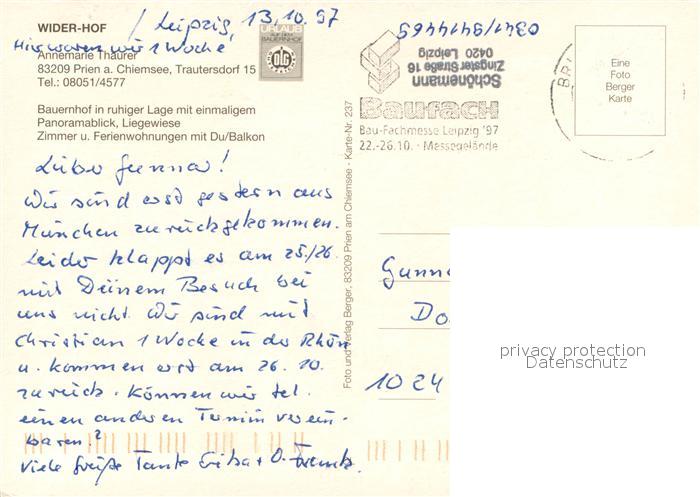 WIDER-HOF
Leipzig, 13.10.97
Hier waren wir 1 Woche
Annemarie Thaurer
83209 Prien a. Chiemsee, Trautersdorf 15
Tel.: 08051/4577
URLAUB
AUF DEM
BAUERNHOF
DLG
Bauernhof in ruhiger Lage mit einmaligem
Panoramablick, Liegewiese
Zimmer u. Ferienwohnungen mit Du/Balkon
Lieber Gunnar!
Wir sind erst gestern aus
München zurückgekommen.
Leider klappt es am 25./26.
mit Deinem Besuch bei
uns nicht. Wir sind mit
Christian 1 Woche in der Rhön
u. kommen erst am 26.10.
zurück. Können wir tel.
einen anderen Termin verein-
baren?
Viele Grüße Tante Erika + O. Frank.
Foto und Verlag Berger, 83209 Prien am Chiemsee - Karte-Nr. 237
0341/9414469
Schönemann
Zingsterstraße 16
0420 Leipzig
BauFacH
Bau-Fachmesse Leipzig '97
22.-26.10. · Messegelände
BRI
Eine
Foto
Berger
Karte
Gunn
Do
1024
privacy protection
Datenschutz